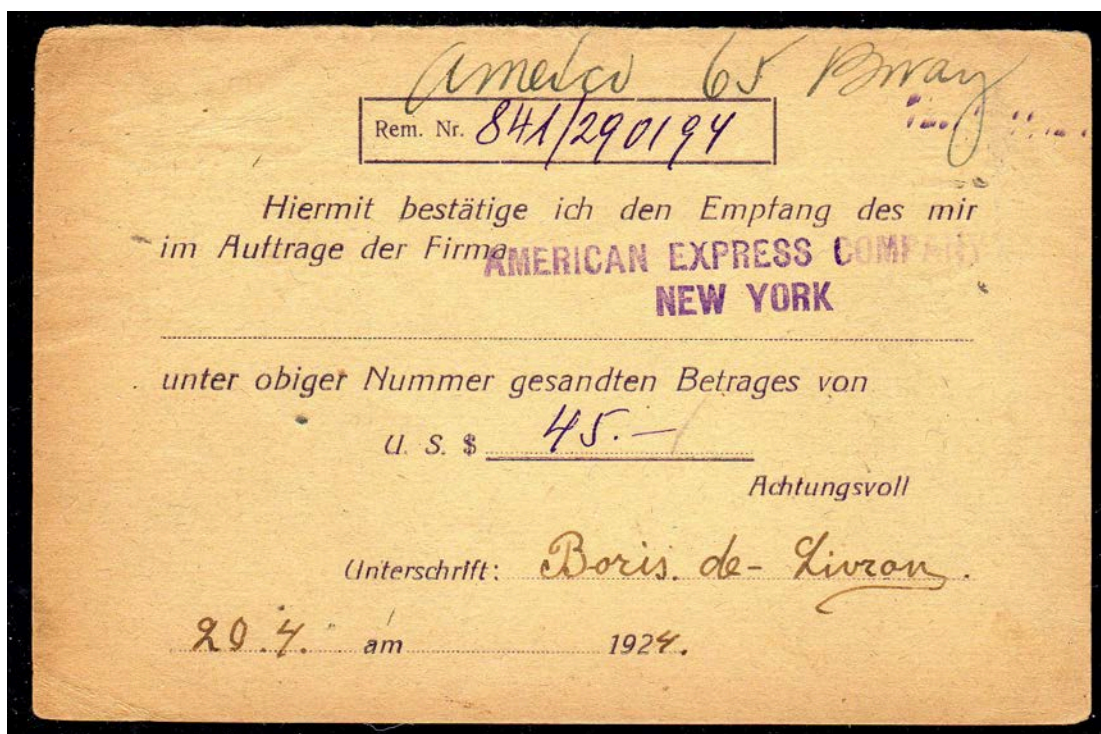 Amexco 65 Bway
Rem. Nr. 841/290194
Hiermit bestätige ich den Empfang des mir
im Auftrage der Firma AMERICAN EXPRESS COMPANY
NEW YORK
unter obiger Nummer gesandten Betrages von
U. S. $ 45.—
Achtungsvoll
Unterschrift: Boris. de- Livron.
29.4. am 1924.